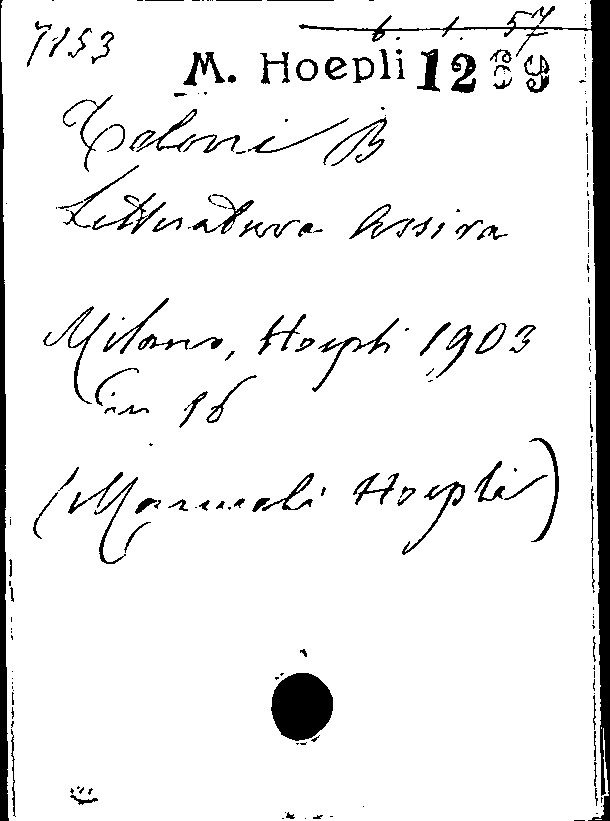 7153
6 1 57
M. Hoepli 1269
Teloni B
Letteratura Assira
Milano, Hoepli 1903
in 16
(Manuali Hoepli)